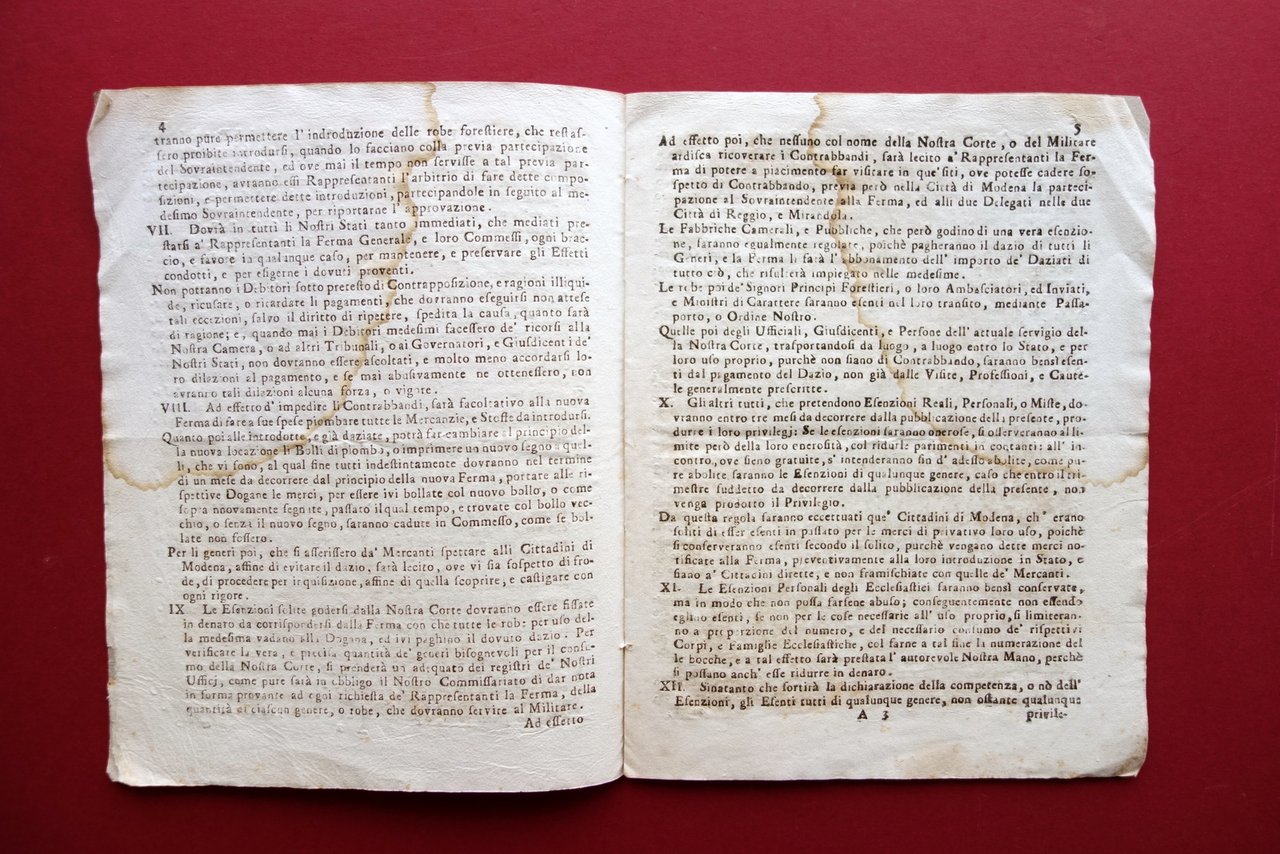 4
tranno pure permettere l' indroduzione delle robe forestiere, che restas-
sero proibite introdursi, quando lo facciano colla previa partecipazione
del Sovraintendente, ed ove mai il tempo non servisse a tal previa par-
tecipazione, avranno essi Rappresentanti l'arbitrio di fare dette compo-
sizioni, e permettere dette introduzioni, partecipandole in seguito al me-
desimo Sovraintendente, per riportarne l'approvazione.
VII. Dovrà in tutti li Nostri Stati tanto immediati, che mediati pre-
starsi a' Rappresentanti la Ferma Generale, e loro Commessi, ogni brac-
cio, e favore in qualunque caso, per mantenere, e preservare gli Effetti
condotti, e per esigerne i dovuti proventi.
Non potranno i Debitori sotto pretesto di Contrapposizione, e ragioni illiqui-
de, ricusare, o ritardare li pagamenti, che dovranno eseguirsi non attese
tali eccezioni, salvo il diritto di ripetere, spedita la causa, quanto sarà
di ragione; e, quando mai i Debitori medesimi facessero de' ricorsi alla
Nostra Camera, o ad altri Tribunali, o ai Governatori, e Giusdicenti de'
Nostri Stati, non dovranno essere ascoltati, e molto meno accordarsi lo-
ro dilazioni al pagamento, e se mai abusivamente ne ottenessero, non
avranno tali dilazioni alcuna forza, o vigore.
VIII. Ad effetto d' impedire li Contrabbandi, sarà facoltativo alla nuova
Ferma di fare a sue spese piombare tutte le Mercanzie, e Stoffe da introdursi.
Quanto poi alle introdotte, e già daziate, potrà far cambiare al principio del-
la nuova locazione li Bolli di piombo, o imprimere un nuovo segno a quel-
li, che vi sono, al qual fine tutti indestintamente dovranno nel termine
di un mese da decorrere dal principio della nuova Ferma, portare alle ri-
spettive Dogane le merci, per essere ivi bollate col nuovo bollo, o come
sopra nuovamente segnite, passato il qual tempo, e trovate col bollo vec-
chio, o senza il nuovo segno, saranno cadute in Commesso, come se bol-
late non fossero.
Per li generi poi, che si asserissero da' Mercanti spettare alli Cittadini di
Modena, affine di evitare il dazio, sarà lecito, ove vi sia sospetto di fro-
de, di procedere per inquisizione, affine di quella scoprire, e castigare con
ogni rigore.
IX Le Esenzioni solite godersi dalla Nostra Corte dovranno essere fissate
in denaro da corrispondersi dalla Ferma con che tutte le robe per uso del-
la medesima vadano alla Dogana, ed ivi paghino il dovuto dazio. Per
verificare la vera, e precisa quantità de' generi bisognevoli per il consu-
mo della Nostra Corte, si prenderà un adequato dei registri de' Nostri
Uffici, come pure sarà in obbligo il Nostro Commissariato di dar nota
in forma provante ad ogni richiesta de' Rappresentanti la Ferma, della
quantità di ciascun genere, o robe, che dovranno servire al Militare.
Ad effetto
5
Ad effetto poi, che nessuno col nome della Nostra Corte, o del Militare
ardisca ricoverare i Contrabbandi, sarà lecito a' Rappresentanti la Fer-
ma di potere a piacimento far visitare in que' siti, ove potesse cadere so-
spetto di Contrabbando, previa però nella Città di Modena la parteci-
pazione al Sovraintendente alla Ferma, ed alli due Delegati nelle due
Città di Reggio, e Mirandola.
Le Fabbriche Camerali, e Pubbliche, che però godino di una vera esenzio-
ne, saranno egualmente regolate, poichè pagheranno il dazio di tutti li
Generi, e la Ferma li farà l'abbonamento dell' importo de' Daziati di
tutto ciò, che risulterà impiegato nelle medesime.
Le robe poi de' Signori Principi Forestieri, o loro Ambasciatori, ed Inviati,
e Ministri di Carattere saranno esenti nel loro transito, mediante Passa-
porto, o Ordine Nostro.
Quelle poi degli Ufficiali, Giusdicenti, e Persone dell' attuale servigio del-
la Nostra Corte, trasportandosi da luogo, a luogo entro lo Stato, e per
loro uso proprio, purchè non siano di Contrabbando, saranno bensì esen-
ti dal pagamento del Dazio, non già dalle Visite, Professioni, e Caute-
le generalmente prescritte.
X. Gli altri tutti, che pretendono Esenzioni Reali, Personali, o Miste, do-
vranno entro tre mesi da decorrere dalla pubblicazione della presente, pro-
durre i loro privilegj: Se le esenzioni saranno onerose, si osserveranno al li-
mite però della loro enerosità, col ridurle parimenti in contanti: all' in-
contro, ove sieno gratuite, s' intenderanno sin d' adesso abolite, come pu-
re abolite saranno le Esenzioni di qualunque genere, caso che entro il tri-
mestre suddetto da decorrere dalla pubblicazione della presente, non
venga prodotto il Privilegio.
Da questa regola saranno eccettuati que' Cittadini di Modena, ch' erano
soliti di esser esenti in passato per le merci di privativo loro uso, poichè
si conserveranno esenti secondo il solito, purchè vengano dette merci no-
tificate alla Ferma, preventivamente alla loro introduzione in Stato, e
siano a' Cittadini dirette, e non framischiate con quelle de' Mercanti.
XI. Le Esenzioni Personali degli Ecclesiastici saranno bensì conservate,
ma in modo che non possa farsene abuso; conseguentemente non essendo
eglino esenti, se non per le cose necessarie all' uso proprio, si limiteran-
no a proporzione del numero, e del necessario consumo de' rispettivi
Corpi, e Famiglie Ecclesiastiche, col farne a tal fine la numerazione del-
le bocche, e a tal effetto sarà prestata l' autorevole Nostra Mano, perchè
si possano anch' esse ridurre in denaro.
XII. Sinatanto che sortirà la dichiarazione della competenza, o nò dell'
Esenzioni, gli Esenti tutti di qualunque genere, non ostante qualunque
A 3 privile-